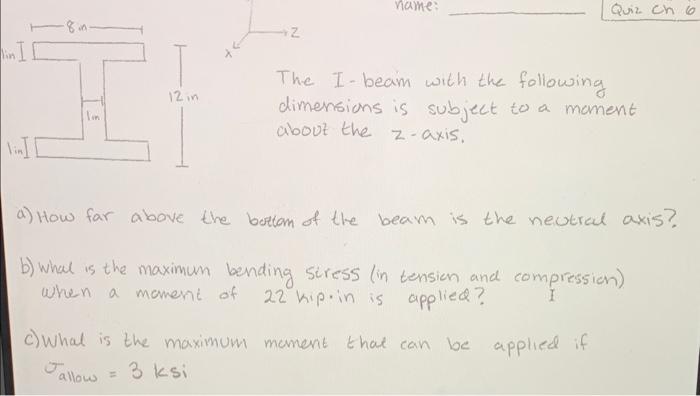 name:
Quiz Ch 6
8 in
z
x
1in
12 in
1in
1in
The I-beam with the following
dimensions is subject to a moment
about the z-axis.
a) How far above the bottom of the beam is the neutral axis?
b) What is the maximum bending stress (in tension and compression)
when a moment of 22 kip·in is applied?
c) What is the maximum moment that can be applied if
σallow = 3 ksi